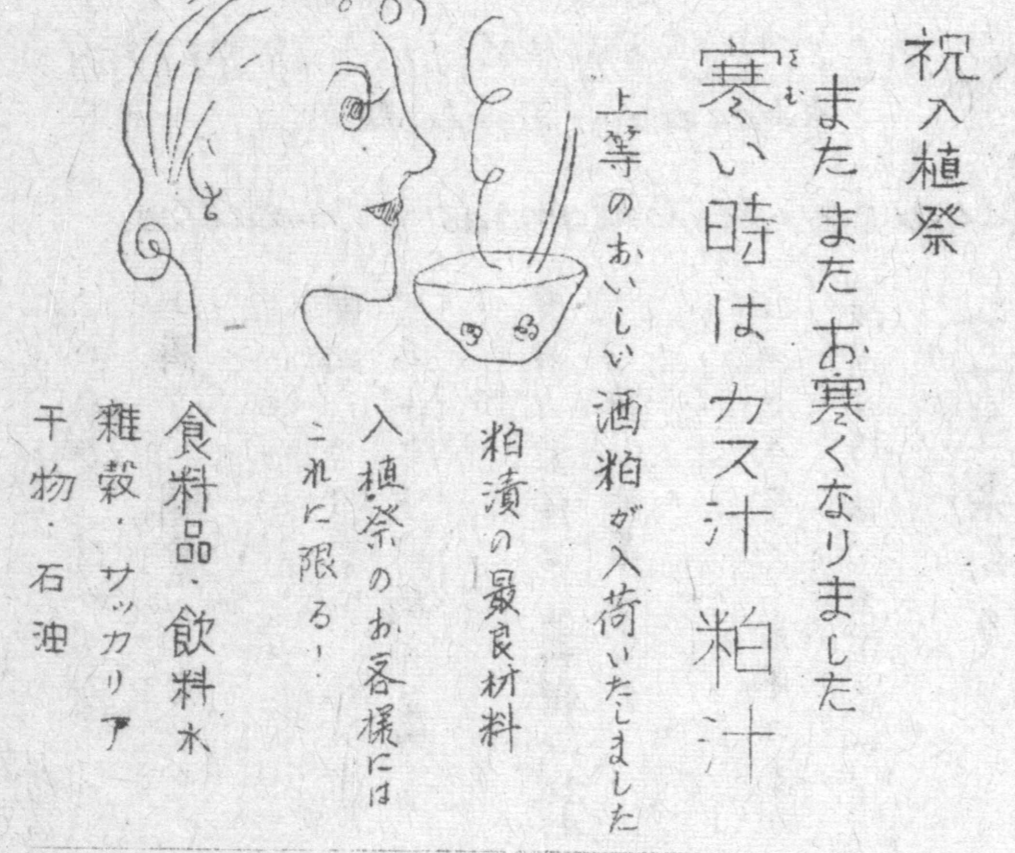 祝入植祭
またまたお寒くなりました
寒い時は カス汁 粕汁
さむ
上等のおいしい酒粕が入荷いたしました
粕漬の最良材料
入植祭のお客様には
これに限る!
食料品・飲料水
雑穀・サッカリア
干物・石油